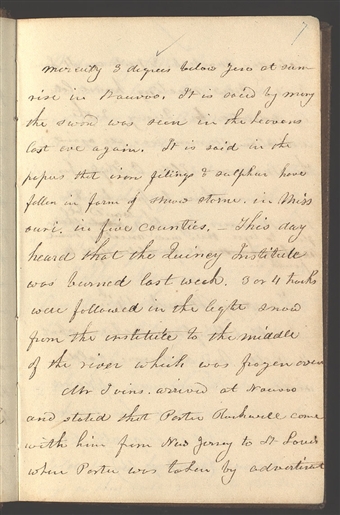 7
mercury 3 degrees below zero at sun-
rise in Nauvoo. It is said by many
the sword was seen in the heavens
last eve again. It is said in the
papers that iron filings & sulphur have
fallen in form of snow storm. in Miss
ouri. in five counties. - This day
heard that the Quincy Institute
was burned last week. 3 or 4 tracks
were followed in the light snow
from the institute to the middle
of the river which was frozen over
Mr Ivins. arrived at Nauvoo
and stated that Porter Rockwell come
with him from New Jersey to St Louis
when Porter was taken by advertisem